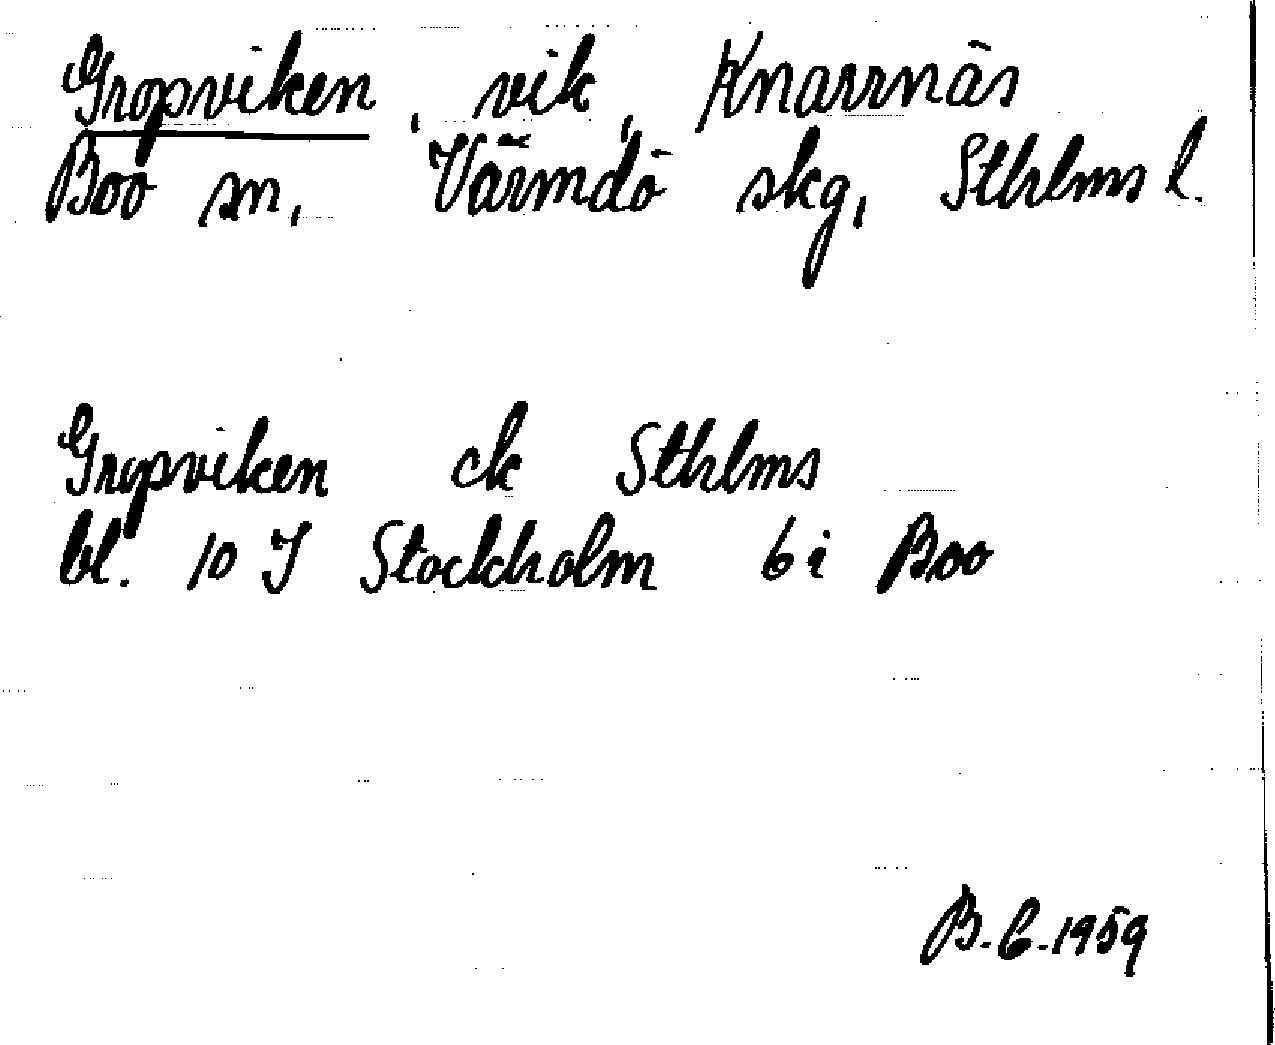 Gropviken, vik, Knarrnäs
Boo sn, Värmdö skg, Sthlms l.
Gropviken ek Sthlms
bl. 10 I Stockholm 6i Boo
B.C. 1959